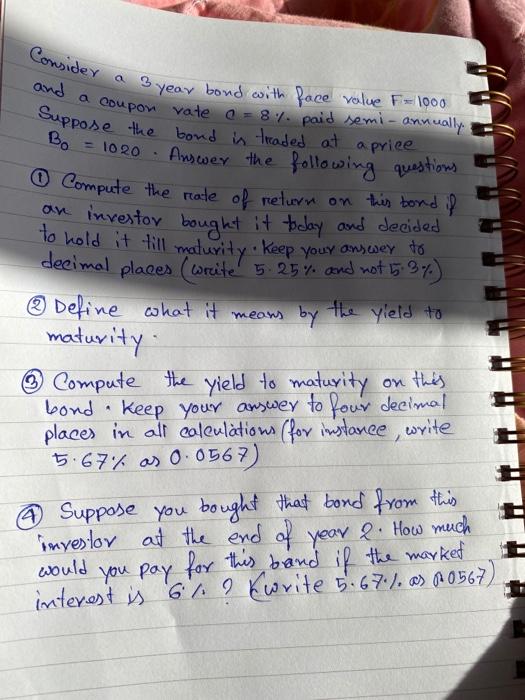 Consider a 3 year bond with face value F=1000
and a coupon rate C = 8% paid semi-annually.
Suppose the bond is traded at a price
B0 = 1020. Answer the following questions
① Compute the rate of return on this bond if
an investor bought it today and decided
to hold it till maturity. Keep your answer to
decimal places (write 5.25% and not 5.3%)
② Define what it means by the yield to
maturity.
③ Compute the yield to maturity on this
bond. Keep your answer to four decimal
places in all calculations (for instance, write
5.67% as 0.0567)
④ Suppose you bought that bond from this
investor at the end of year 2. How much
would you pay for this bond if the market
interest is 6%? (write 5.67% as 0.0567)